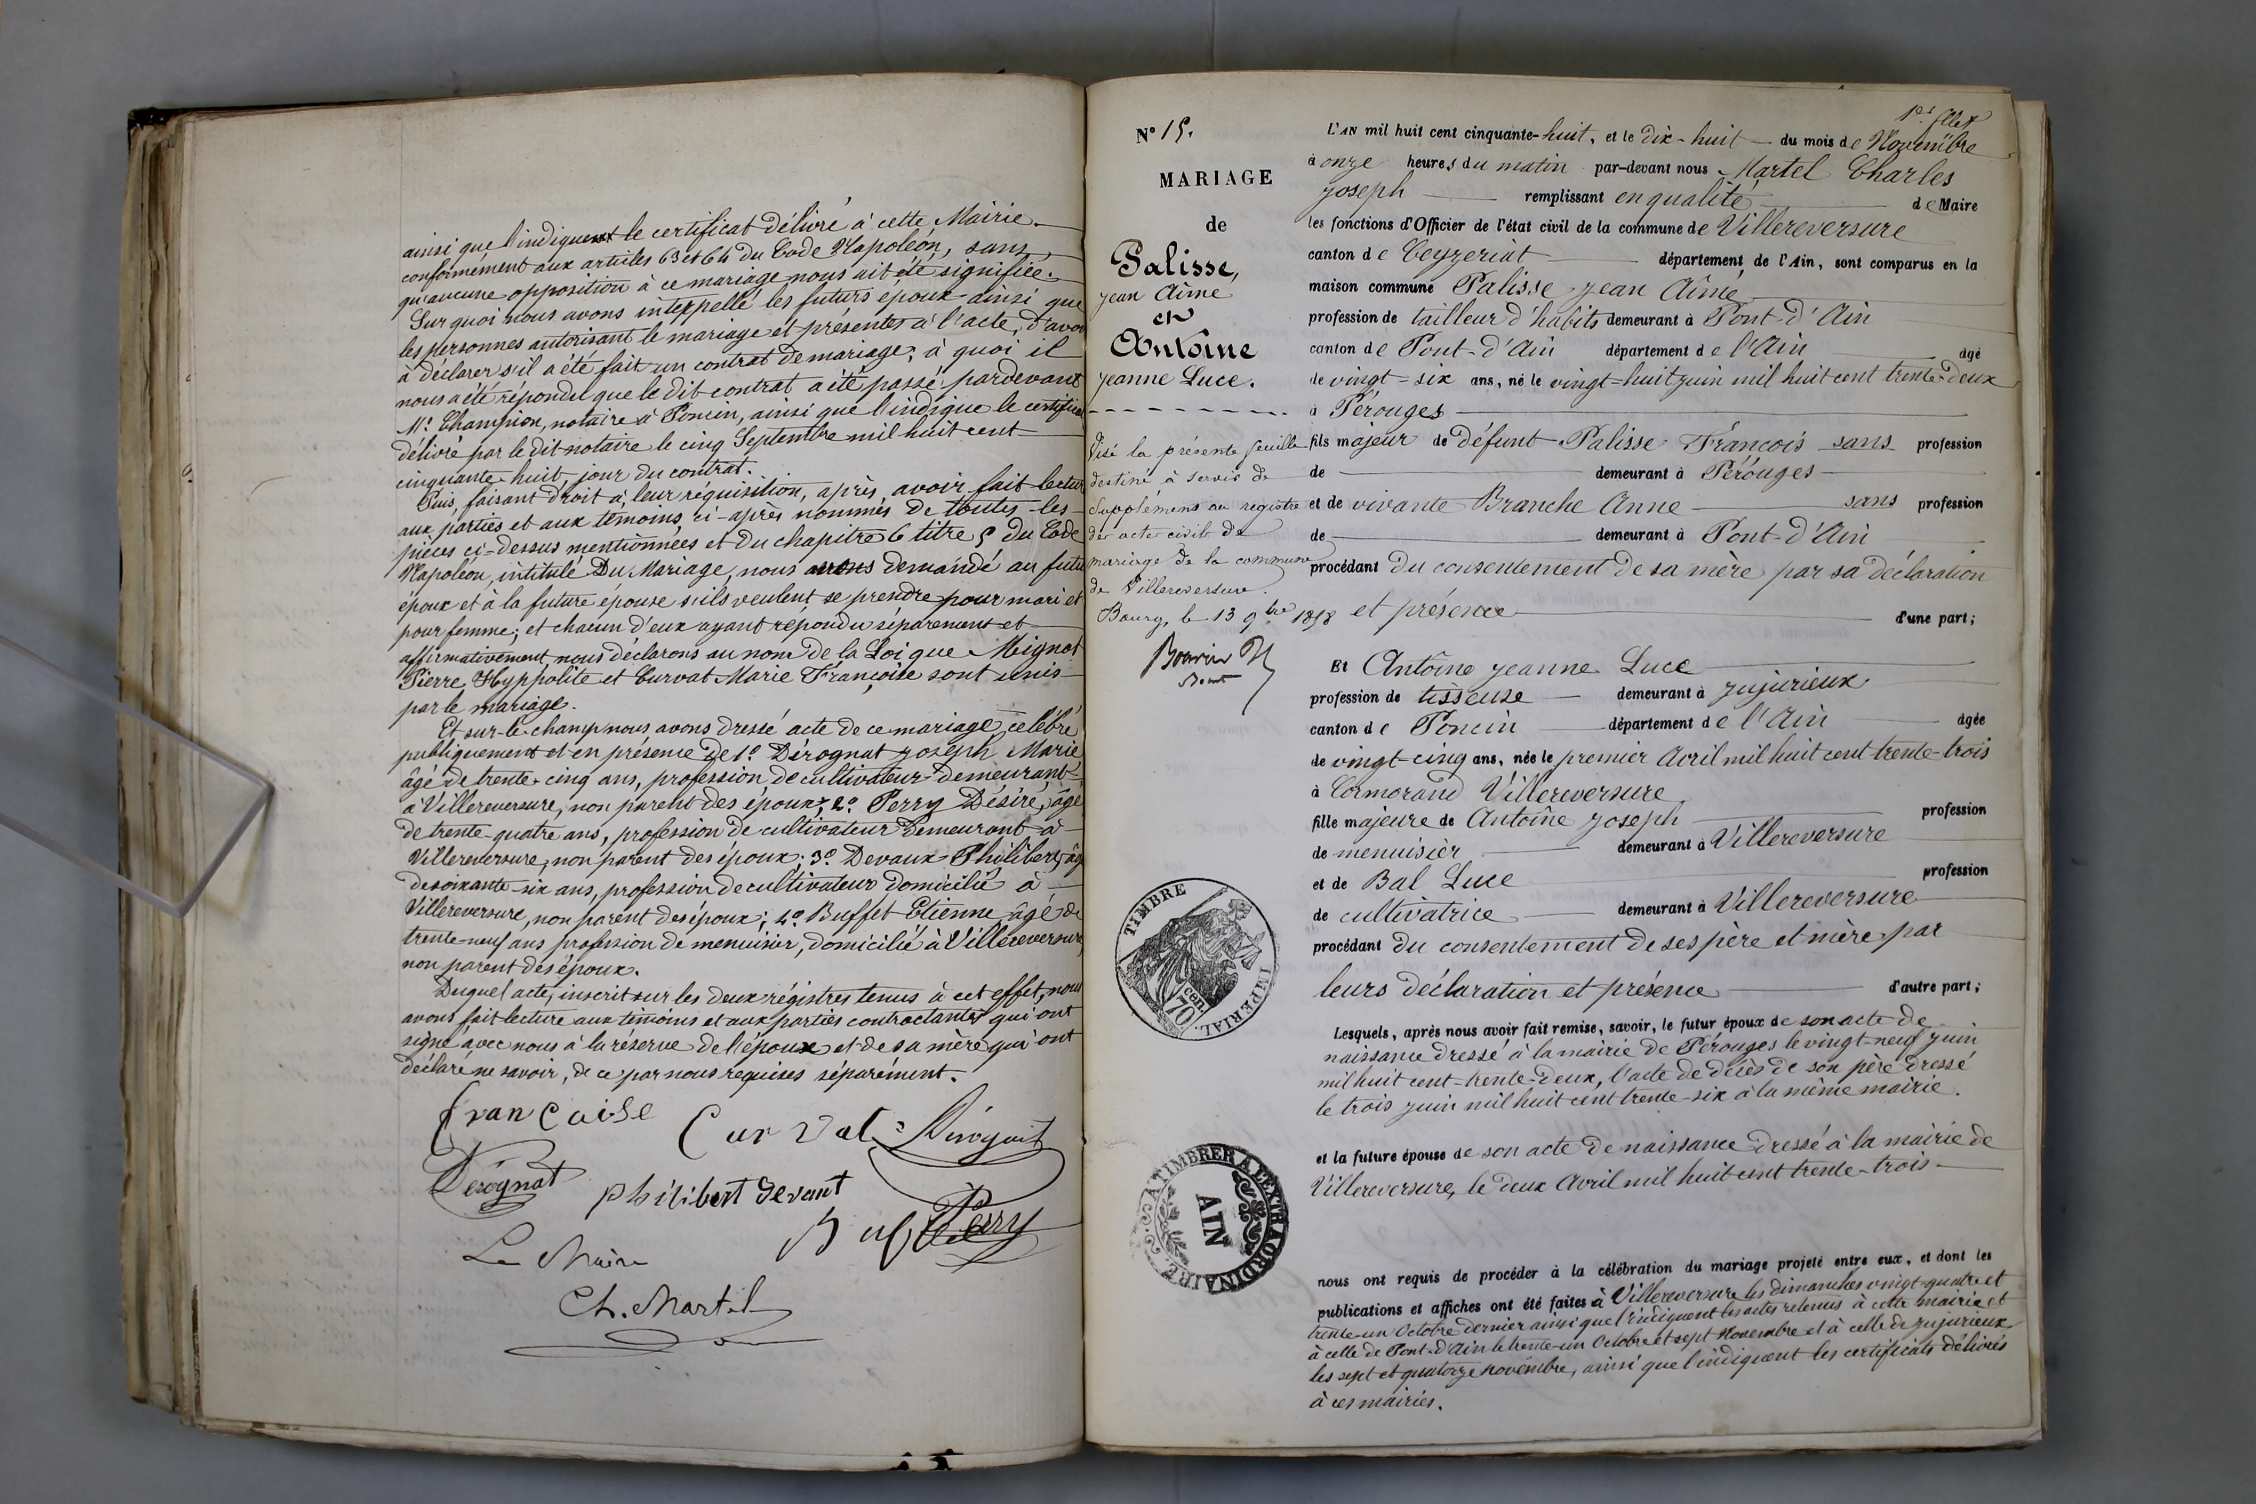 ainsi que l'indiquent le certificat délivré à cette Mairie
conformément aux articles 63 et 64 du Code Napoléon, sans
qu'aucune opposition à ce mariage nous ait été signifiée.
Sur quoi nous avons interpellé les futurs époux ainsi que
les personnes autorisant le mariage et présentes à l'acte, d'avoir
à déclarer s'il a été fait un contrat de mariage; à quoi il
nous a été répondu que le dit contrat a été passé pardevant
Me. Champion, notaire à Poncin, ainsi que l'indique le certificat
délivré par le dit notaire le cinq Septembre mil huit cent
cinquante huit, jour du contrat.
Puis, faisant droit à leur réquisition, après avoir fait lecture
aux parties et aux témoins, ci-après nommés de toutes les
pièces ci-dessus mentionnées et du chapitre 6 titre 5 du Code
Napoléon, intitulé Du Mariage, nous avons demandé au futur
époux et à la future épouse s'ils veulent se prendre pour mari et
pour femme; et chacun d'eux ayant répondu séparément et
affirmativement, nous déclarons au nom de la Loi que Mignot
Pierre Hyppolite et Curvat Marie Françoise sont unis
par le mariage.
Et sur-le-champ nous avons dressé acte de ce mariage célébré
publiquement et en présence de 1º. Dérognat Joseph Marie
âgé de trente-cinq ans, profession de cultivateur demeurant
à Villereversure, non parent des époux; 2º. Perry Désiré, âgé
de trente-quatre ans, profession de cultivateur demeurant à
Villereversure, non parent des époux; 3º. Devaux Philibert, âgé
de soixante-six ans, profession de cultivateur domicilié à
Villereversure, non parent des époux; 4º. Buffet Etienne, âgé de
trente-neuf ans profession de menuisier, domicilié à Villereversure,
non parent des époux.
Duquel acte, inscrit sur les deux régistres tenus à cet effet, nous
avons fait lecture aux témoins et aux parties contractantes qui ont
signé avec nous à la réserve de l'époux et de sa mère qui ont
déclaré ne savoir, de ce par nous requises séparément.
françoise Curvat Dérognat
Dérognat philibert devaut
Buf Perry
Le Maire
Ch. Martel
Nº 15.
MARIAGE
de
Palisse,
Jean Aimé
et
Antoine
Jeanne Luce.
Visé la présente feuille
destiné à servir de
Supplément au registre
des actes civils de
mariage de la commune
de Villereversure.
Bourg, le 13 9bre 1858
TIMBRE IMPERIAL
70 cen
A TIMBRER A L'EXTRAORDINAIRE
AIN
L'AN mil huit cent cinquante-huit, et le dix-huit du mois de Novembre
à onze heures du matin par-devant nous Martel Charles
Joseph remplissant en qualité de Maire
les fonctions d'Officier de l'état civil de la commune de Villereversure
canton de Ceyzeriat département de l'Ain, sont comparus en la
maison commune Palisse Jean Aimé
profession de tailleur d'habits demeurant à Pont-d'Ain
canton de Pont-d'Ain département de l'Ain âgé
de vingt-six ans, né le vingt-huit juin mil huit cent trente-deux
à Pérouges
fils majeur de défunt Palisse François sans profession
de demeurant à Pérouges
et de vivante Branche Anne sans profession
de demeurant à Pont-d'Ain
procédant du consentement de sa mère par sa déclaration
et présence d'une part;
Et Antoine Jeanne Luce
profession de tisseuse demeurant à Jujurieux
canton de Poncin département de l'Ain âgée
de vingt-cinq ans, née le premier Avril mil huit cent trente-trois
à Cormorand Villereversure
fille majeure de Antoine Joseph profession
de menuisier demeurant à Villereversure
et de Bal Luce profession
de cultivatrice demeurant à Villereversure
procédant du consentement de ses père et mère par
leurs déclaration et présence d'autre part;
Lesquels, après nous avoir fait remise, savoir, le futur époux de son acte de
naissance dressé à la mairie de Pérouges le vingt-neuf juin
mil huit cent-trente-deux, l'acte de décès de son père dressé
le trois juin mil huit cent trente-six à la même mairie.
et la future épouse de son acte de naissance dressé à la mairie de
Villereversure, le deux Avril mil huit cent trente-trois
nous ont requis de procéder à la célébration du mariage projeté entre eux, et dont les
publications et affiches ont été faites à Villereversure les dimanches vingt-quatre et
trente-un Octobre dernier ainsi que l'indiquent les actes retenus à cette mairie et
à celle de Pont-d'Ain le trente-un Octobre et sept Novembre et à celle de Jujurieux
les sept et quatorze novembre, ainsi que l'indiquent les certificats délivrés
à ces mairies.